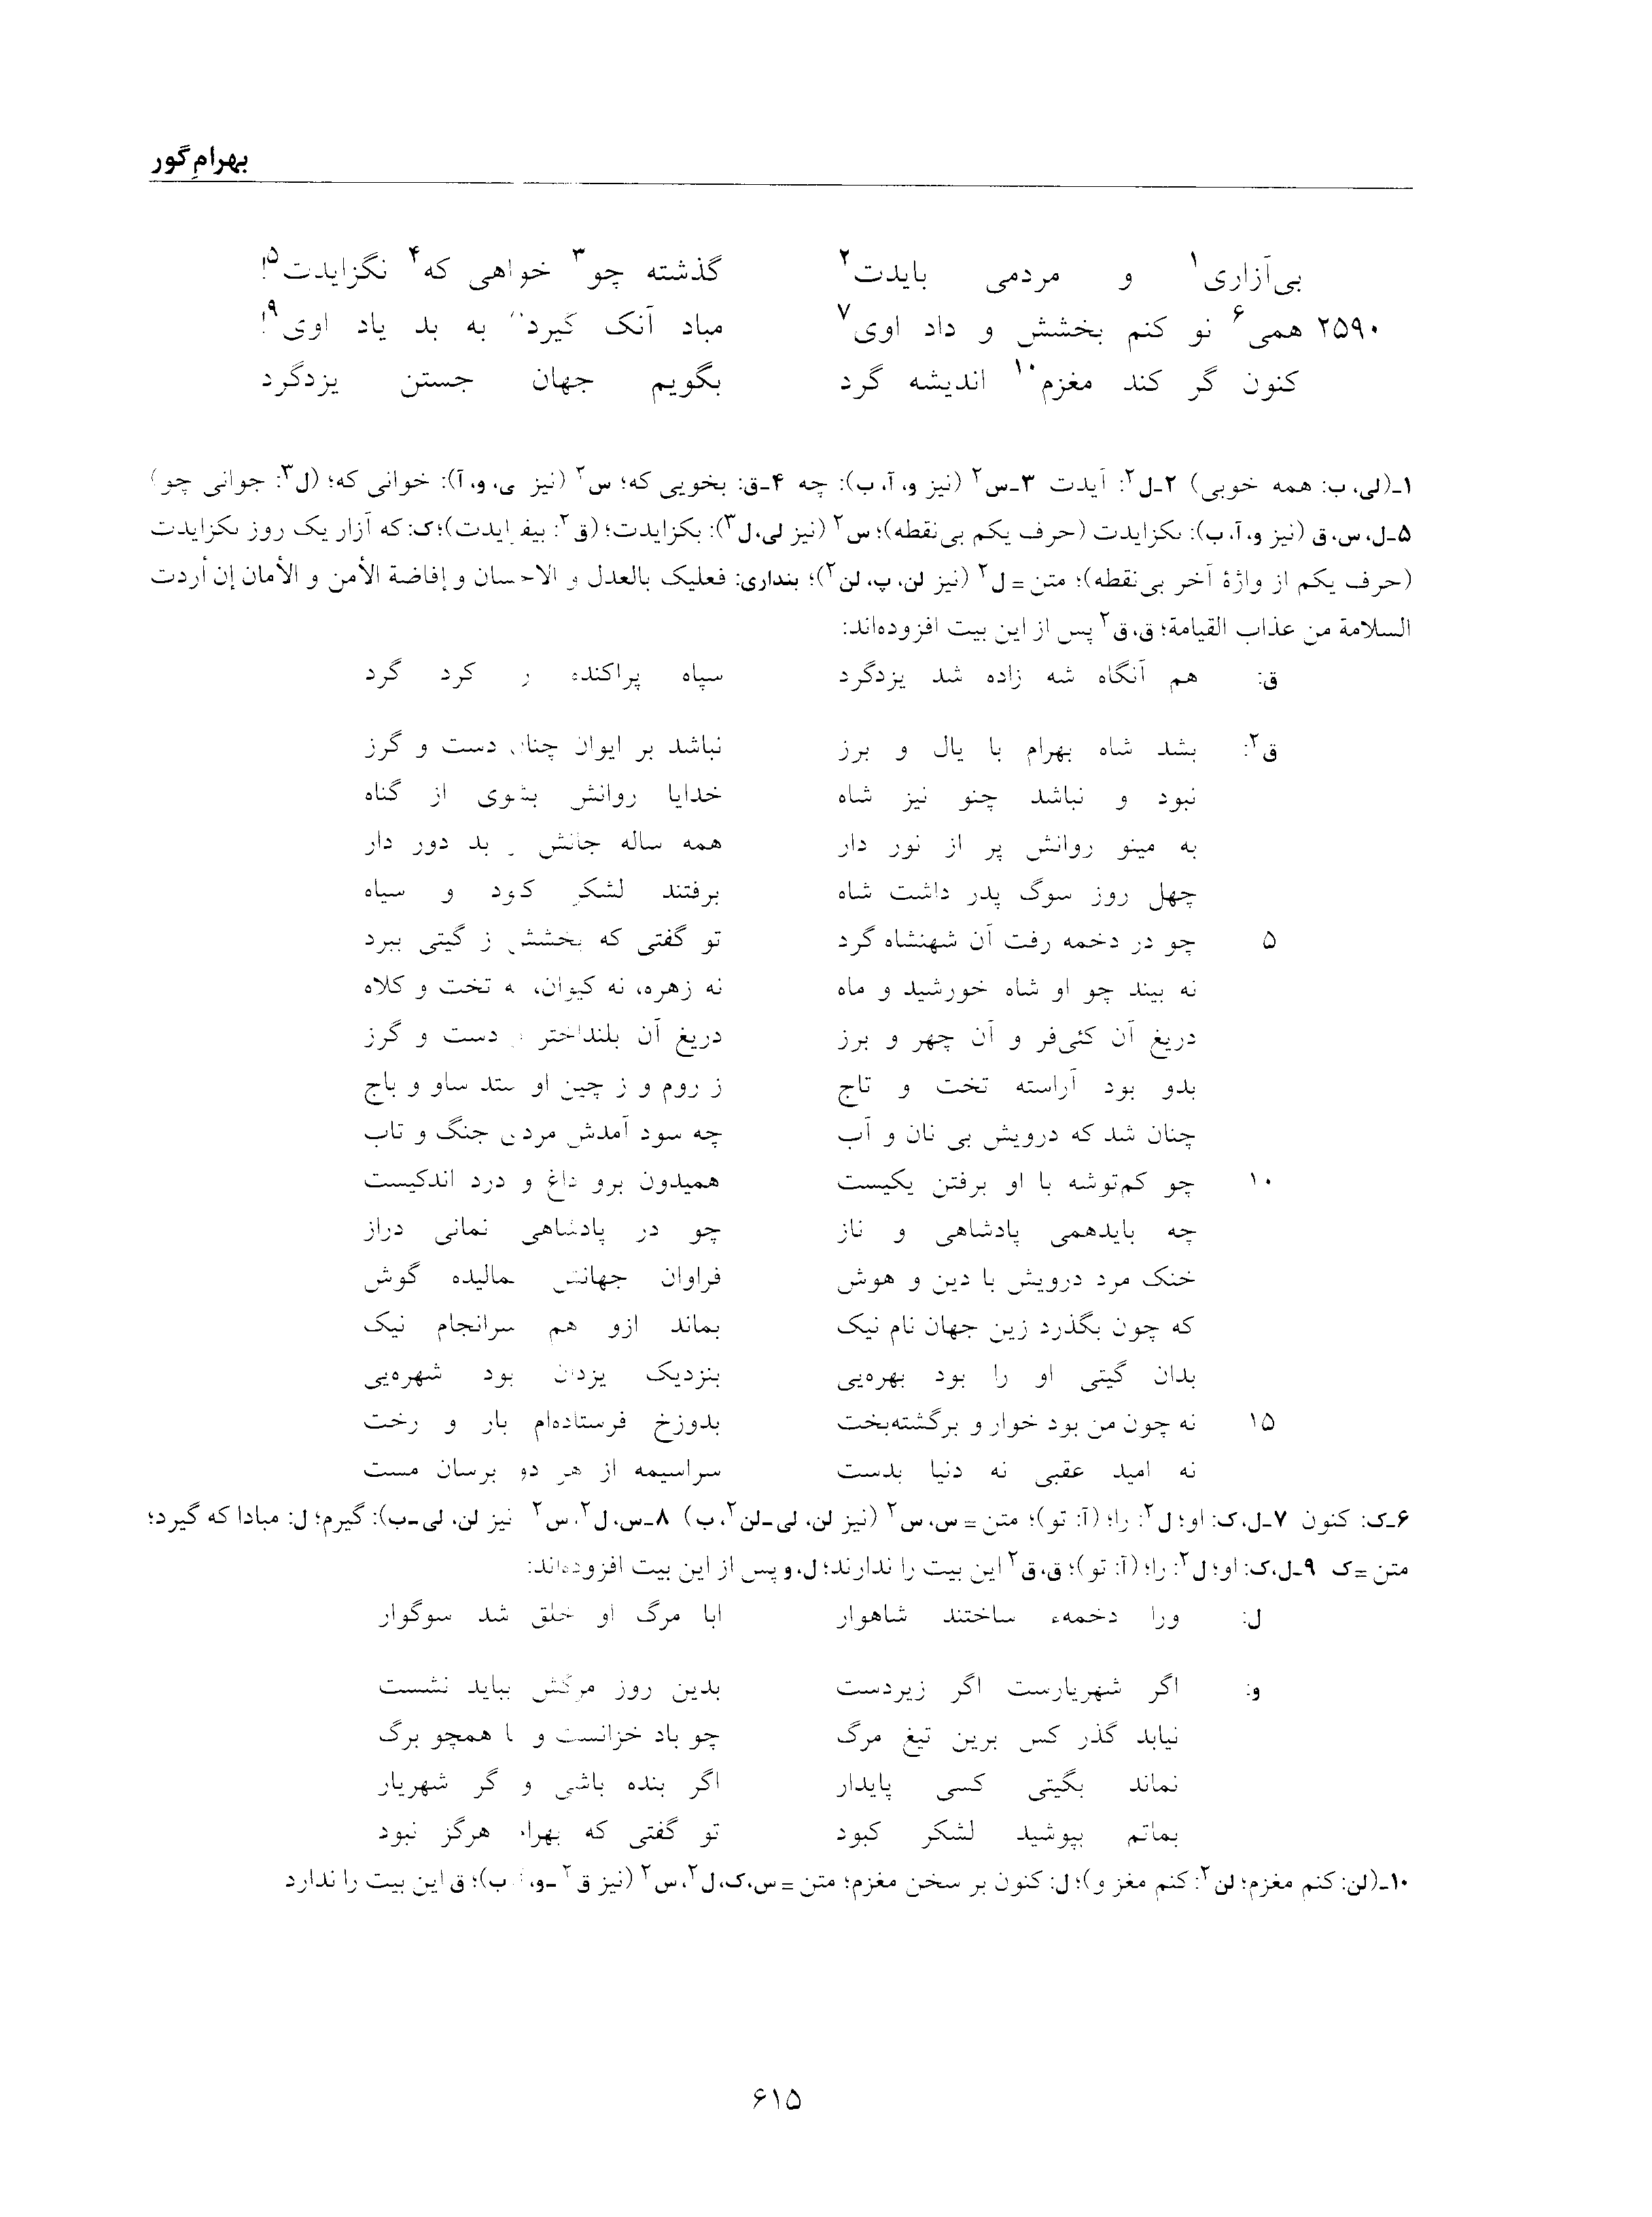 بهرامِ گور
بی‌آزاری۱ و مردمی بایدت۲ گذشته چو۳ خواهی که۴ نگزایدت۵!
۲۵۹۰ همی۶ نو کنم بخشش و داد اوی۷ مباد آنک گیرد۸ به بد یاد اوی۹!
کنون گر کند مغزم۱۰ اندیشه گرد بگویم جهان جستن یزدگرد
۱ـ(لی، ب: همه خوبی) ۲ـل۲: آیدت ۳ـس۲ (نیز و، آ، ب): چه ۴ـق: بخویی که؛ س۲ (نیز ی، و، آ): خوانی که؛ (ل۳: جوانی چو)
۵ـل، س، ق (نیز و، آ، ب): ٮکزایدت (حرف یکم بی‌نقطه)؛ س۲ (نیز لی، ل۳): بکزایدت؛ (ق۲: بیفزایدت)؛ ک: که آزار یک روز ٮکزایدت
(حرف یکم از واژهٔ آخر بی‌نقطه)؛ متن = ل۲ (نیز لن، پ، لن۲)؛ بنداری: فعلیک بالعدل و الاحسان و إفاضة الأمن و الأمان إن أردت
السلامة من عذاب القیامة؛ ق، ق۲ پس از این بیت افزوده‌اند:
ق: هم آنگاه شه زاده شد یزدگرد سپاه پراکنده را کرد گرد
ق۲: بشد شاه بهرام با یال و برز نباشد بر ایوان چنان دست و گرز
نبود و نباشد چنو نیز شاه خدایا روانش بشوی از گناه
به مینو روانش پر از نور دار همه ساله جانش ز بد دور دار
چهل روز سوگ پدر داشت شاه برفتند لشکر کبود و سیاه
۵ چو در دخمه رفت آن شهنشاه گرد تو گفتی که بخشش ز گیتی ببرد
نه بیند چو او شاه خورشید و ماه نه زهره، نه کیوان، نه تخت و کلاه
دریغ آن کئی‌فر و آن چهر و برز دریغ آن بلنداختر و دست و گرز
بدو بود آراسته تخت و تاج ز روم و ز چین او ستد ساو و باج
چنان شد که درویش بی نان و آب چه سود آمدش مردی جنگ و تاب
۱۰ چو کم‌توشه با او برفتن یکیست همیدون برو داغ و درد اندکیست
چه بایدهمی پادشاهی و ناز چو در پادشاهی نمانی دراز
خنک مرد درویش با دین و هوش فراوان جهانش بمالیده گوش
که چون بگذرد زین جهان نام نیک بماند ازو هم سرانجام نیک
بدان گیتی او را بود بهره‌یی بنزدیک یزدان بود شهره‌یی
۱۵ نه چون من بود خوار و برگشته‌بخت بدوزخ فرستاده‌ام بار و رخت
نه امید عقبی نه دنیا بدست سراسیمه از هر دو برسان مست
۶ـک: کنون ۷ـل، ک: او؛ ل۲: را؛ (آ: تو)؛ متن = س، س۲ (نیز لن، لی‌ـلن۲، ب) ۸ـس، ل۲، س۲ نیز لن، لی‌ـب): گیرم؛ ل: مبادا که گیرد؛
متن = ک ۹ـل، ک: او؛ ل۲: را؛ (آ: تو)؛ ق، ق۲ این بیت را ندارند؛ ل، و پس از این بیت افزوده‌اند:
ل: ورا دخمهء ساختند شاهوار ابا مرگ او خلق شد سوگوار
و: اگر شهریارست اگر زیردست بدین روز مرگش بباید نشست
نیابد گذر کس برین تیغ مرگ چو باد خزانست و ما همچو برگ
نماند بگیتی کسی پایدار اگر بنده باشی و گر شهریار
بماتم بپوشید لشکر کبود تو گفتی که بهرام هرگز نبود
۱۰ـ(لن: کنم مغزم؛ لن۲: کنم مغز و)؛ ل: کنون بر سخن مغزم؛ متن = س، ک، ل۲، س۲ (نیز ق۲ـو، آ، ب)؛ ق این بیت را ندارد
۶۱۵